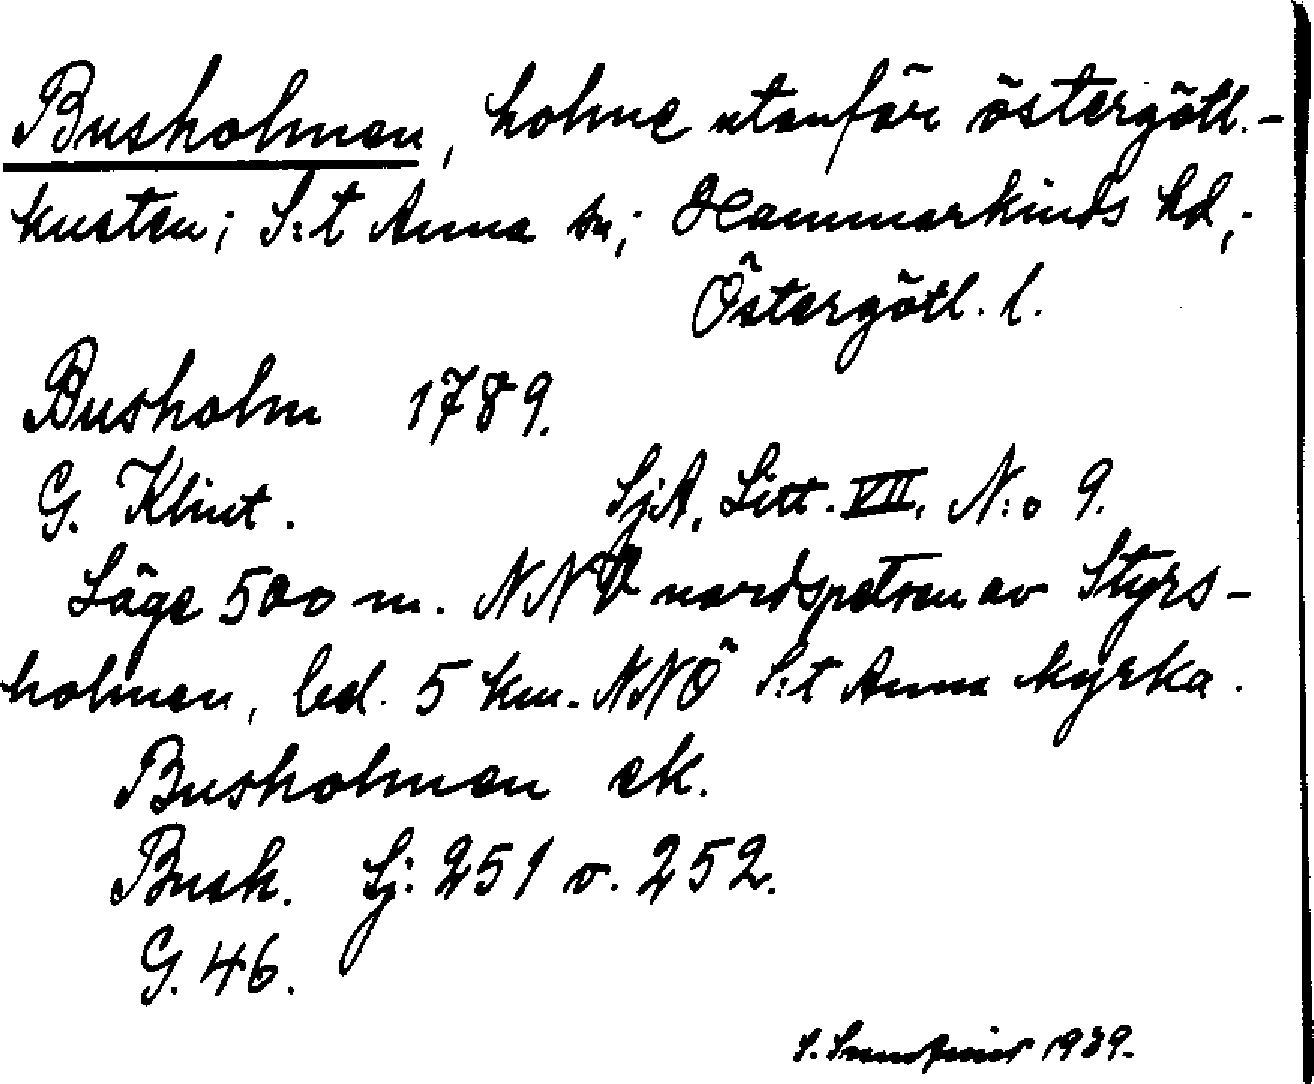 Busholmen, holme utanför östergötl.-
kusten; S:t Anna sn; Hammarkinds hd,;
Östergötl. l.
Busholm 1789.
G. Klint. SjA, Litt. VII, N:o 9.
Läge 500 m. NNV nordspetsen av Styrs-
holmen, bel. 5 km. NNÖ S:t Anna kyrka.
Busholmen ek.
Bush. Sj: 251 o. 252.
G. 46.
S. 1939.